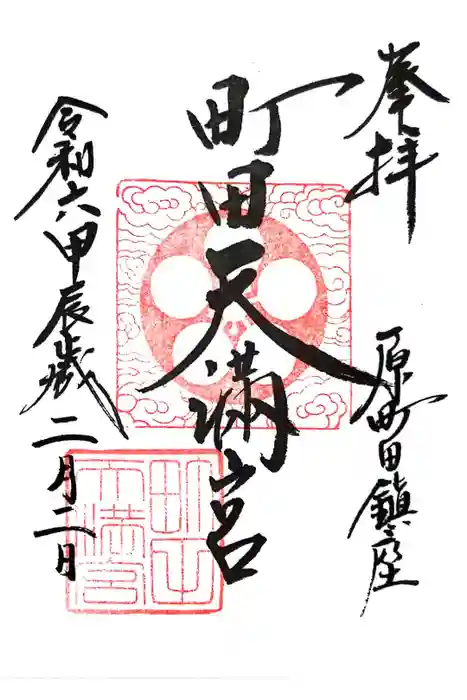 奉拝
原町田鎮座
町田天満宮
令和六甲辰歳二月二日
町田
天満宮